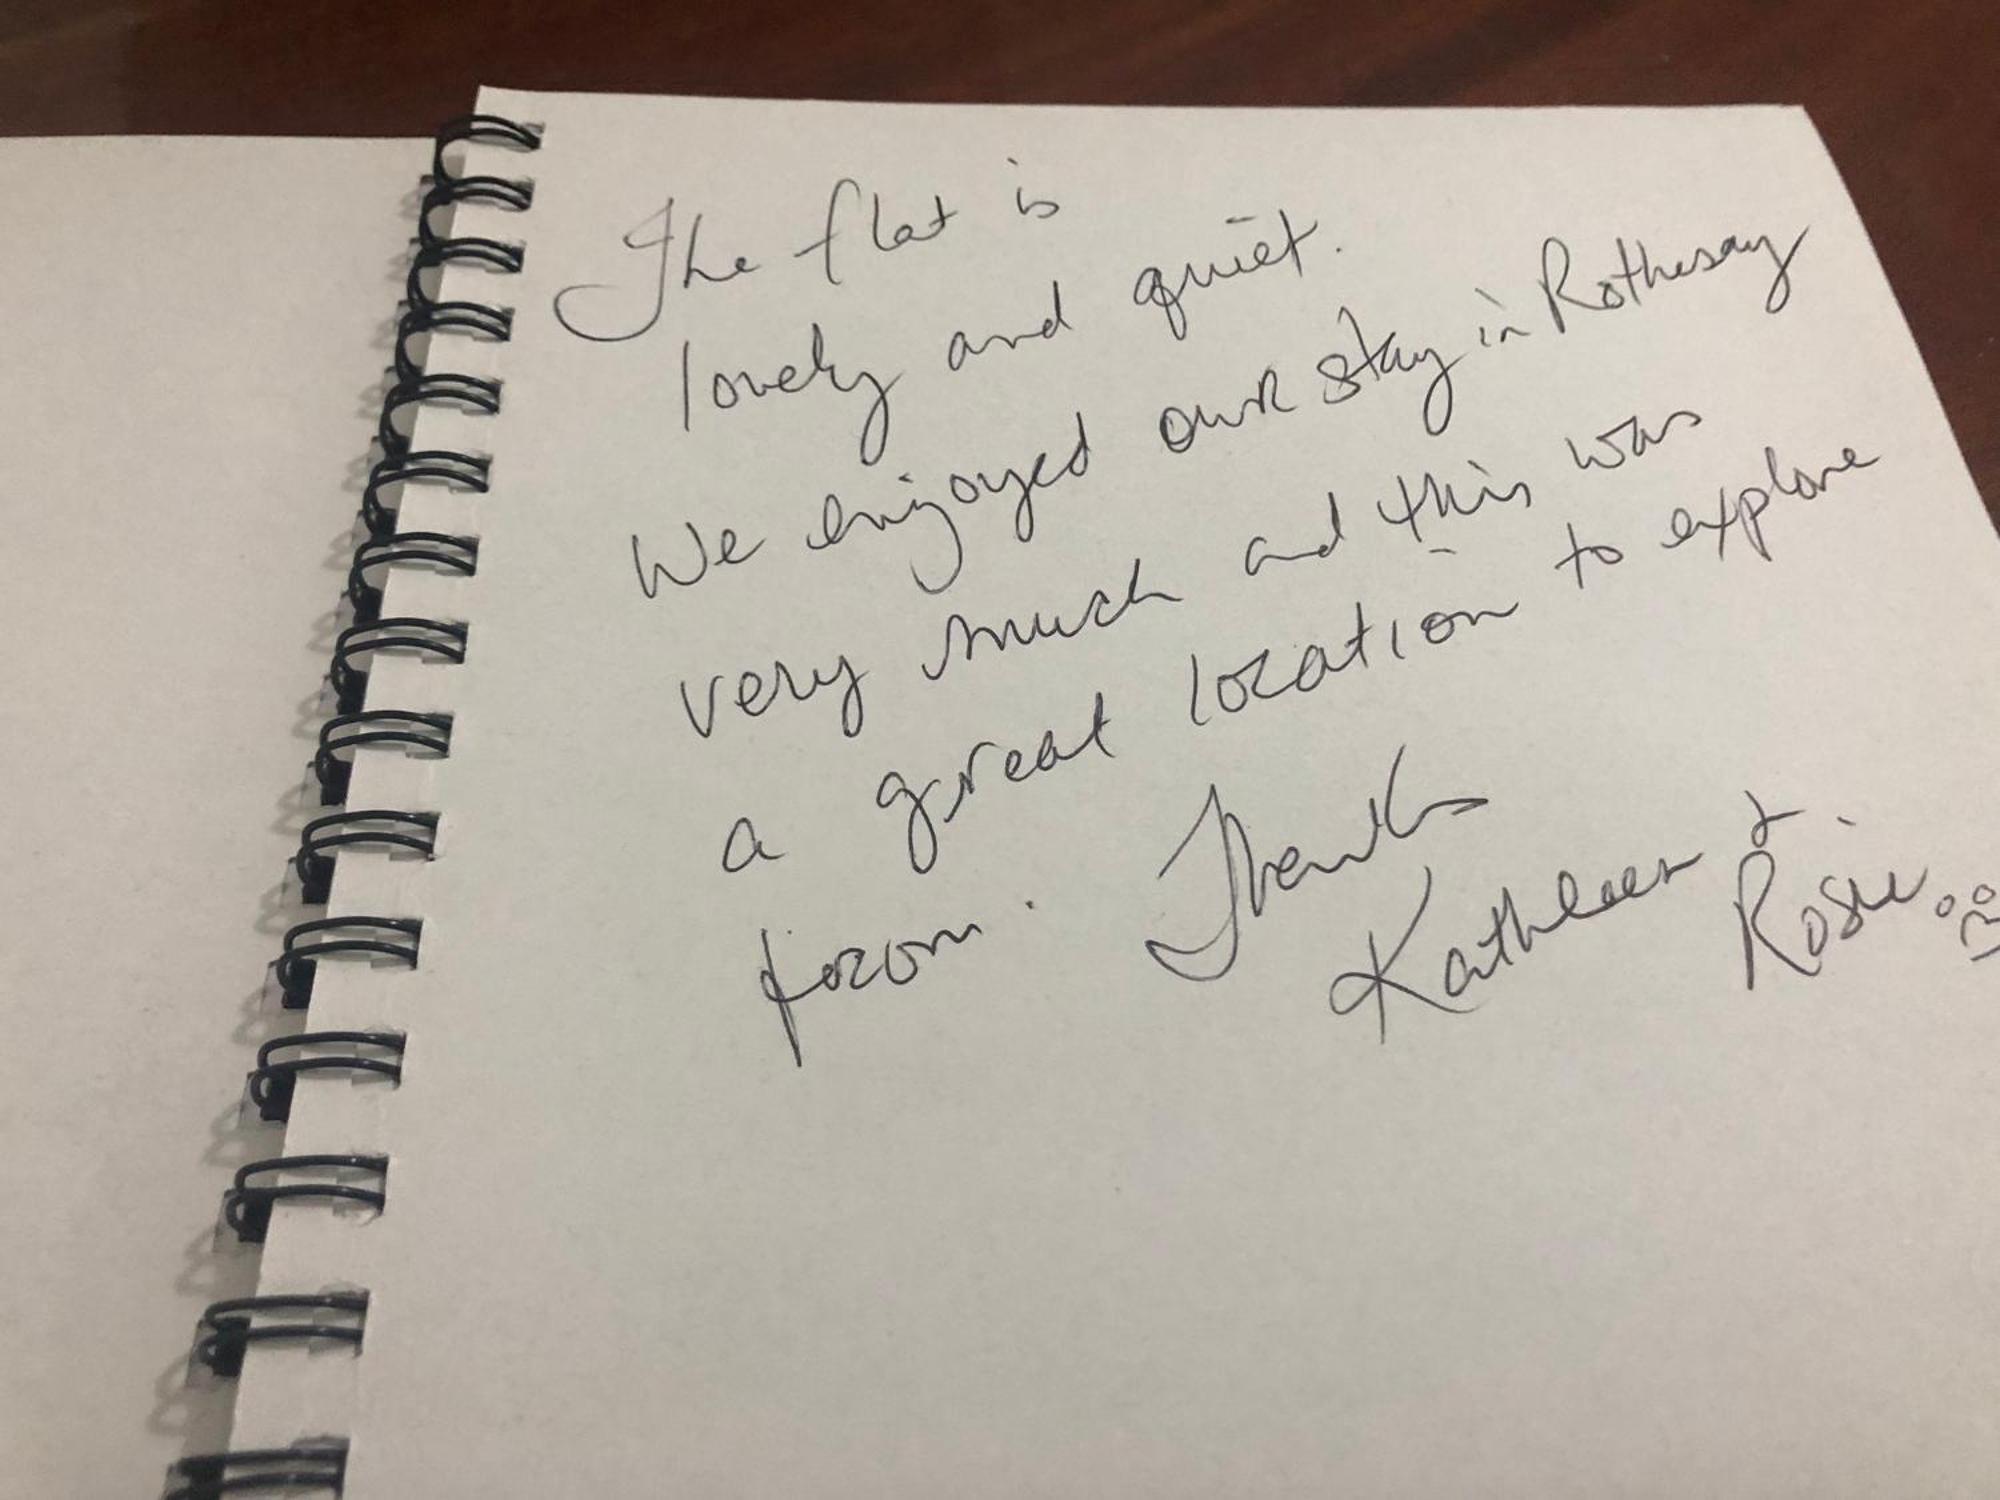 The flat is
lovely and quiet.
We enjoyed our stay in Rothesay
very much and this was
a great location to explore
from. Thanks
Kathleen &
Rosie